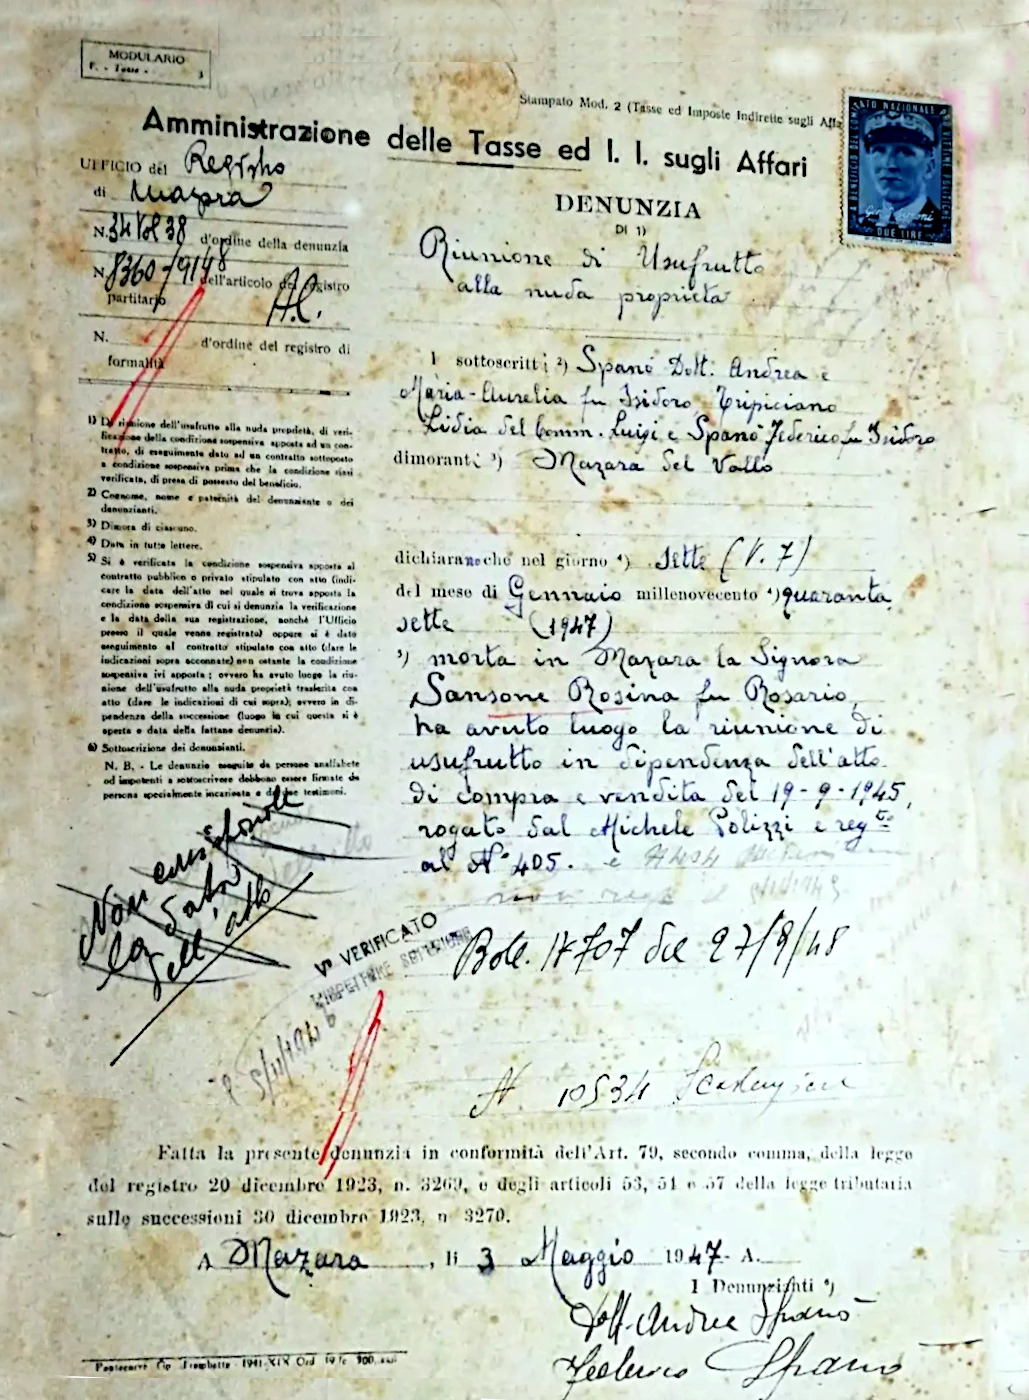 MODULARIO
F. - Tasse - 3
Stampato Mod. 2 (Tasse ed Imposte Indirette sugli Affa
Amministrazione delle Tasse ed I. I. sugli Affari
A BENEFICIO DEL COMITATO NAZIONALE VITTIME POLITICHE
DUE LIRE
UFFICIO del Registro
di Mazara
N. 34 Vol 38 d'ordine della denunzia
N. 8360/9148 dell'articolo del registro
partitario
N. d'ordine del registro di
formalità
DENUNZIA
DI 1)
Riunione di Usufrutto
alla nuda proprietà
I sottoscritti 2) Spanò Dott. Andrea e
Maria-Aurelia fu Isidoro, Tripiciano
Lidia del Comm. Luigi e Spanò Federico fu Isidoro
dimoranti 3) Mazara del Vallo
dichiarano che nel giorno 4) Sette (N. 7)
del mese di Gennaio millenovecento 4) quaranta
sette (1947)
5) morta in Mazara la Signora
Sansone Rosina fu Rosario,
ha avuto luogo la riunione di
usufrutto in dipendenza dell'atto
di compra e vendita del 19-9-1945,
rogato dal Michele Polizzi e reg.to
al N° 405.
1) Di riunione dell'usufrutto alla nuda proprietà, di veri-
ficazione della condizione sospensiva apposta ad un con-
tratto, di eseguimento dato ad un contratto sottoposto
a condizione sospensiva prima che la condizione siasi
verificata, di presa di possesso del beneficio.
2) Cognome, nome e paternità del denunziante o dei
denunzianti.
3) Dimora di ciascuno.
4) Data in tutte lettere.
5) Si è verificata la condizione sospensiva apposta al
contratto pubblico o privato stipulato con atto (indi-
care la data dell'atto nel quale si trova apposta la
condizione sospensiva di cui si denunzia la verificazione
e la data della sua registrazione, nonchè l'Ufficio
presso il quale venne registrato) oppure si è dato
eseguimento al contratto stipulato con atto (dare le
indicazioni sopra accennate) non ostante la condizione
sospensiva ivi apposta; ovvero ha avuto luogo la riu-
nione dell'usufrutto alla nuda proprietà trasferita con
atto (dare le indicazioni di cui sopra); ovvero in di-
pendenza della successione (luogo in cui questa si è
aperta e data della fattane denunzia).
6) Sottoscrizione dei denunzianti.
N. B. - Le denunzie eseguite da persone analfabete
od impotenti a sottoscrivere debbono essere firmate da
persona specialmente incaricata e da due testimoni.
Non
la data
dell'atto
V° VERIFICATO
L'ISPETTORE
Bole. 17707 del 27/9/48
N 10534
Fatta la presente denunzia in conformità dell'Art. 79, secondo comma, della legge
del registro 20 dicembre 1923, n. 3269, e degli articoli 53, 54 e 57 della legge tributaria
sulle successioni 30 dicembre 1923, n 3270.
A Mazara, li 3 Maggio 1947- A.
I Denunzianti 6)
Dott. Andrea Spanò
Federico Spanò